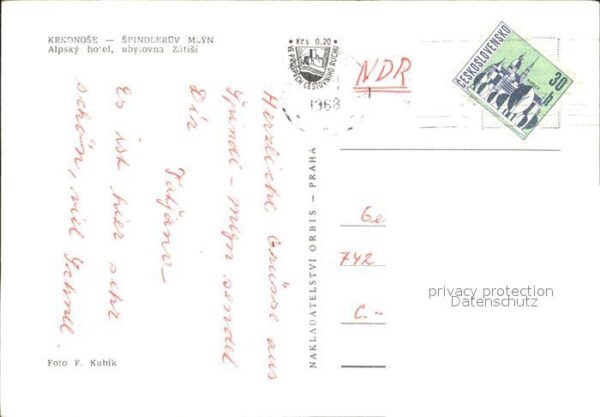 KRKONOŠE — ŠPINDLERŮV MLÝN
Alpský hotel, ubytovna Zátiší
Kčs 0,20
VE PROSPĚCH CESTOVNÍHO RUCHU
1968
NDR
ČESKOSLOVENSKO
30 h
Herzliche Grüsse aus
Spindl-Mlyn sendet
Dir
Tatjana
Es ist hier sehr
schön, viel Schnee.
NAKLADATELSTVÍ ORBIS — PRAHA
Ge
742
C.-
privacy protection
Datenschutz
Foto F. Kubík